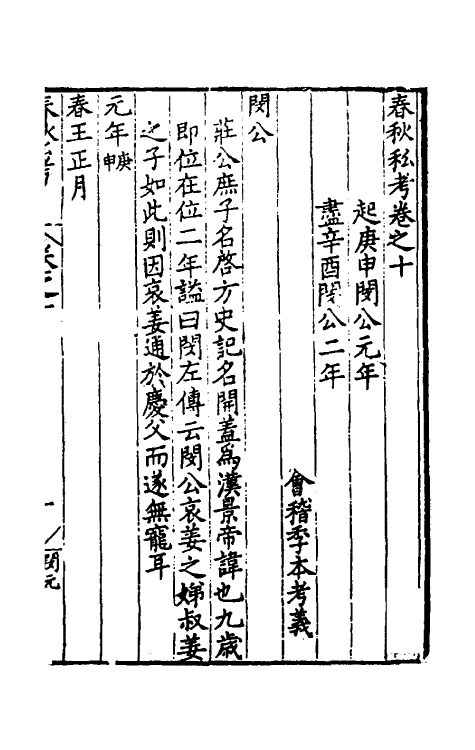 春秋私考卷之十
起庚申閔公元年
盡辛酉閔公二年
會稽季本考義
閔公
莊公庶子名啓方史記名開蓋為漢景帝諱也九歲
即位在位二年謚曰閔左傳云閔公哀姜之娣叔姜
之子如此則因哀姜通於慶父而遂無寵耳
元年庚申
春王正月
閔元